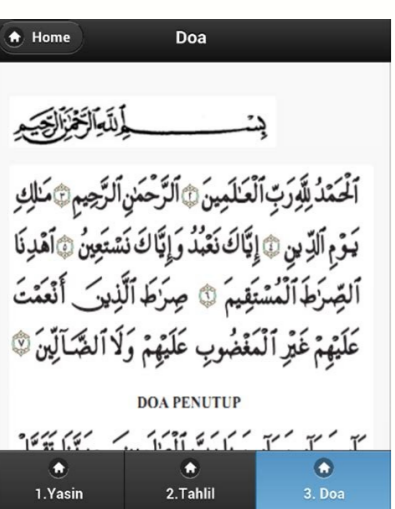 Home
Doa
بِسْمِ ٱللَّهِ ٱلرَّحْمَٰنِ ٱلرَّحِيمِ
ٱلْحَمْدُ لِلَّهِ رَبِّ ٱلْعَٰلَمِينَ ٢ ٱلرَّحْمَٰنِ ٱلرَّحِيمِ ٣ مَٰلِكِ
يَوْمِ ٱلدِّينِ ٤ إِيَّاكَ نَعْبُدُ وَإِيَّاكَ نَسْتَعِينُ ٥ ٱهْدِنَا
ٱلصِّرَٰطَ ٱلْمُسْتَقِيمَ ٦ صِرَٰطَ ٱلَّذِينَ أَنْعَمْتَ
عَلَيْهِمْ غَيْرِ ٱلْمَغْضُوبِ عَلَيْهِمْ وَلَا ٱلضَّآلِّينَ ٧
DOA PENUTUP
1.Yasin
2.Tahlil
3. Doa